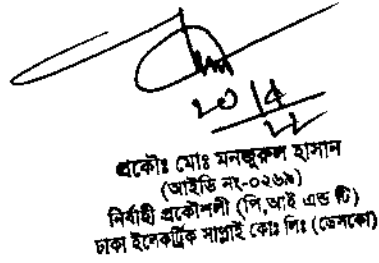 ২০/৪
২২
প্রকৌঃ মোঃ মনজুরুল হাসান
(আইডি নং-০২৬৯)
নির্বাহী প্রকৌশলী (পি,আই এন্ড টি)
ঢাকা ইলেকট্রিক সাপ্লাই কোঃ লিঃ (ডেসকো)